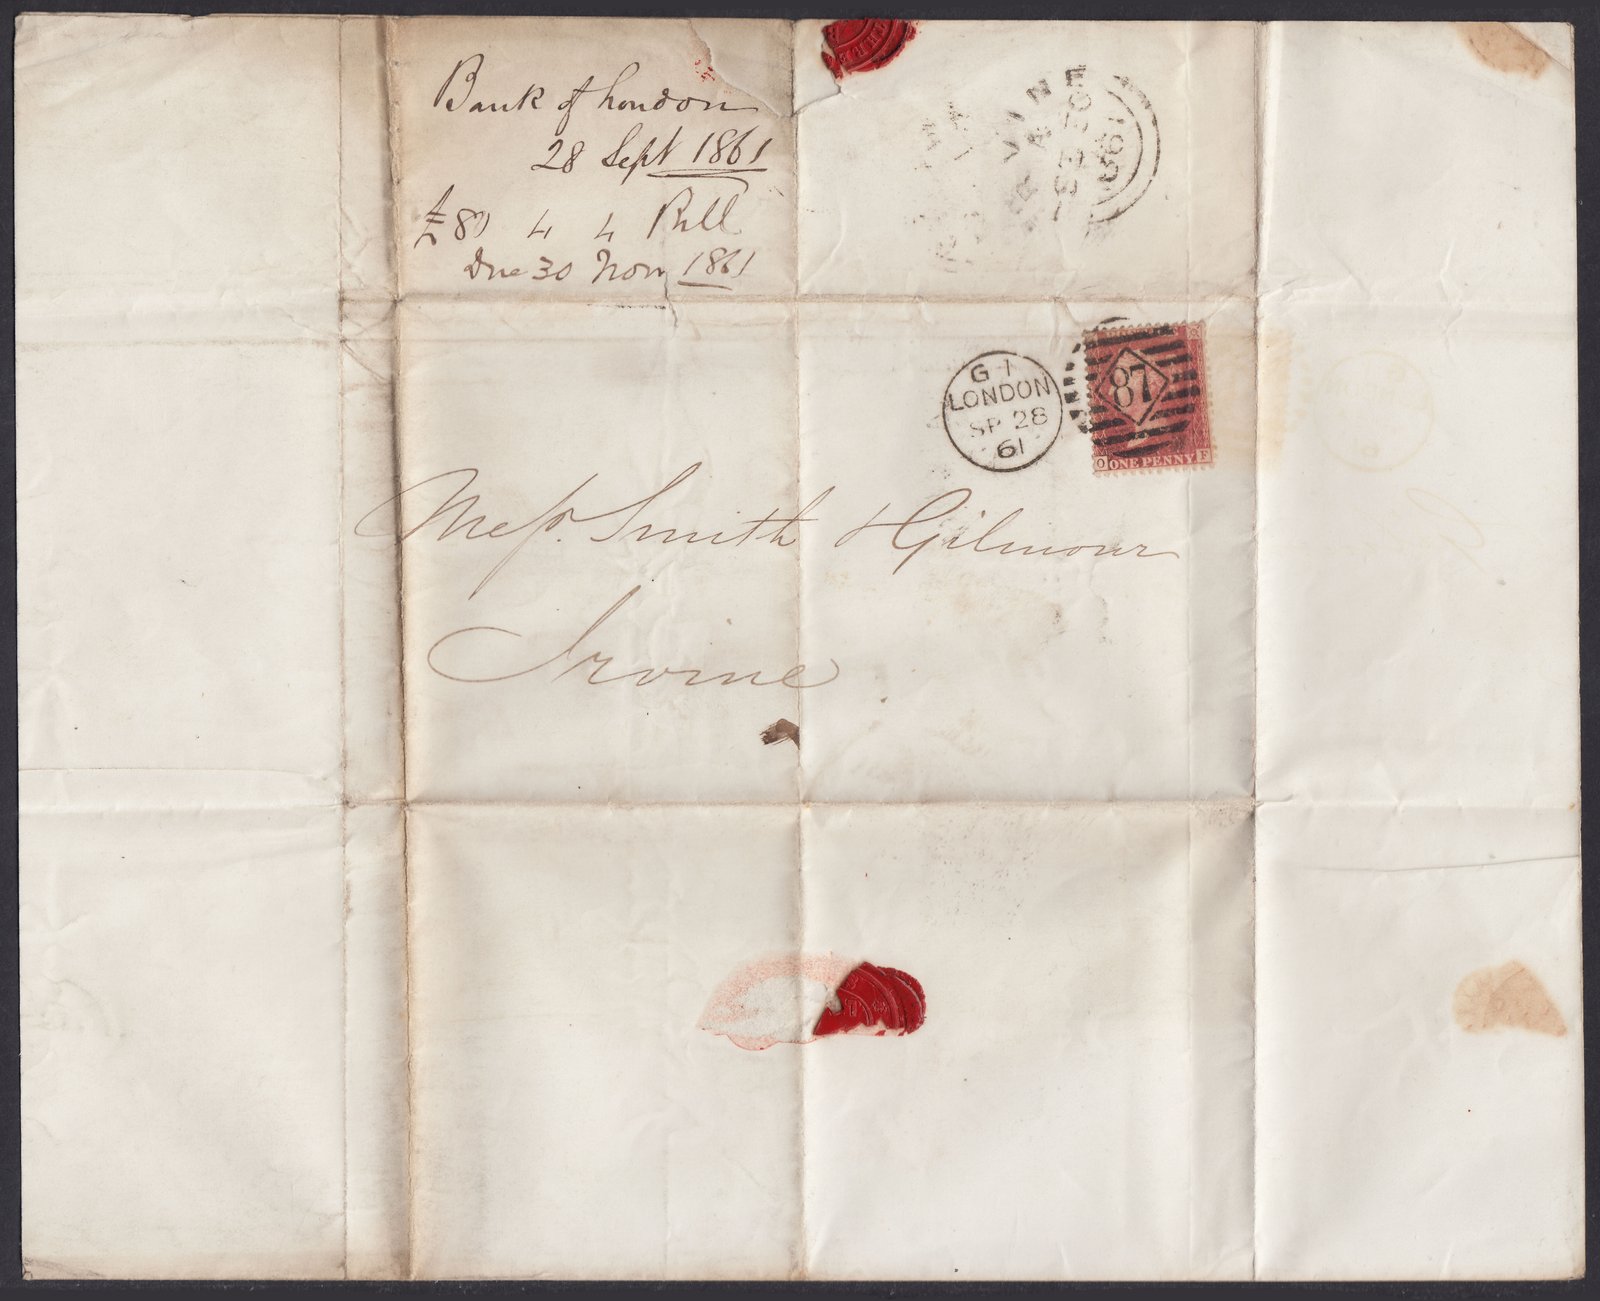 Bank of London
28 Sept 1861
£80 4 4 Bill
Due 30 Nov 1861
VINE
SE 30
1861
G 1
LONDON
SP 28
61
87
O ONE PENNY F
Messrs. Smith & Gilmour
Irvine